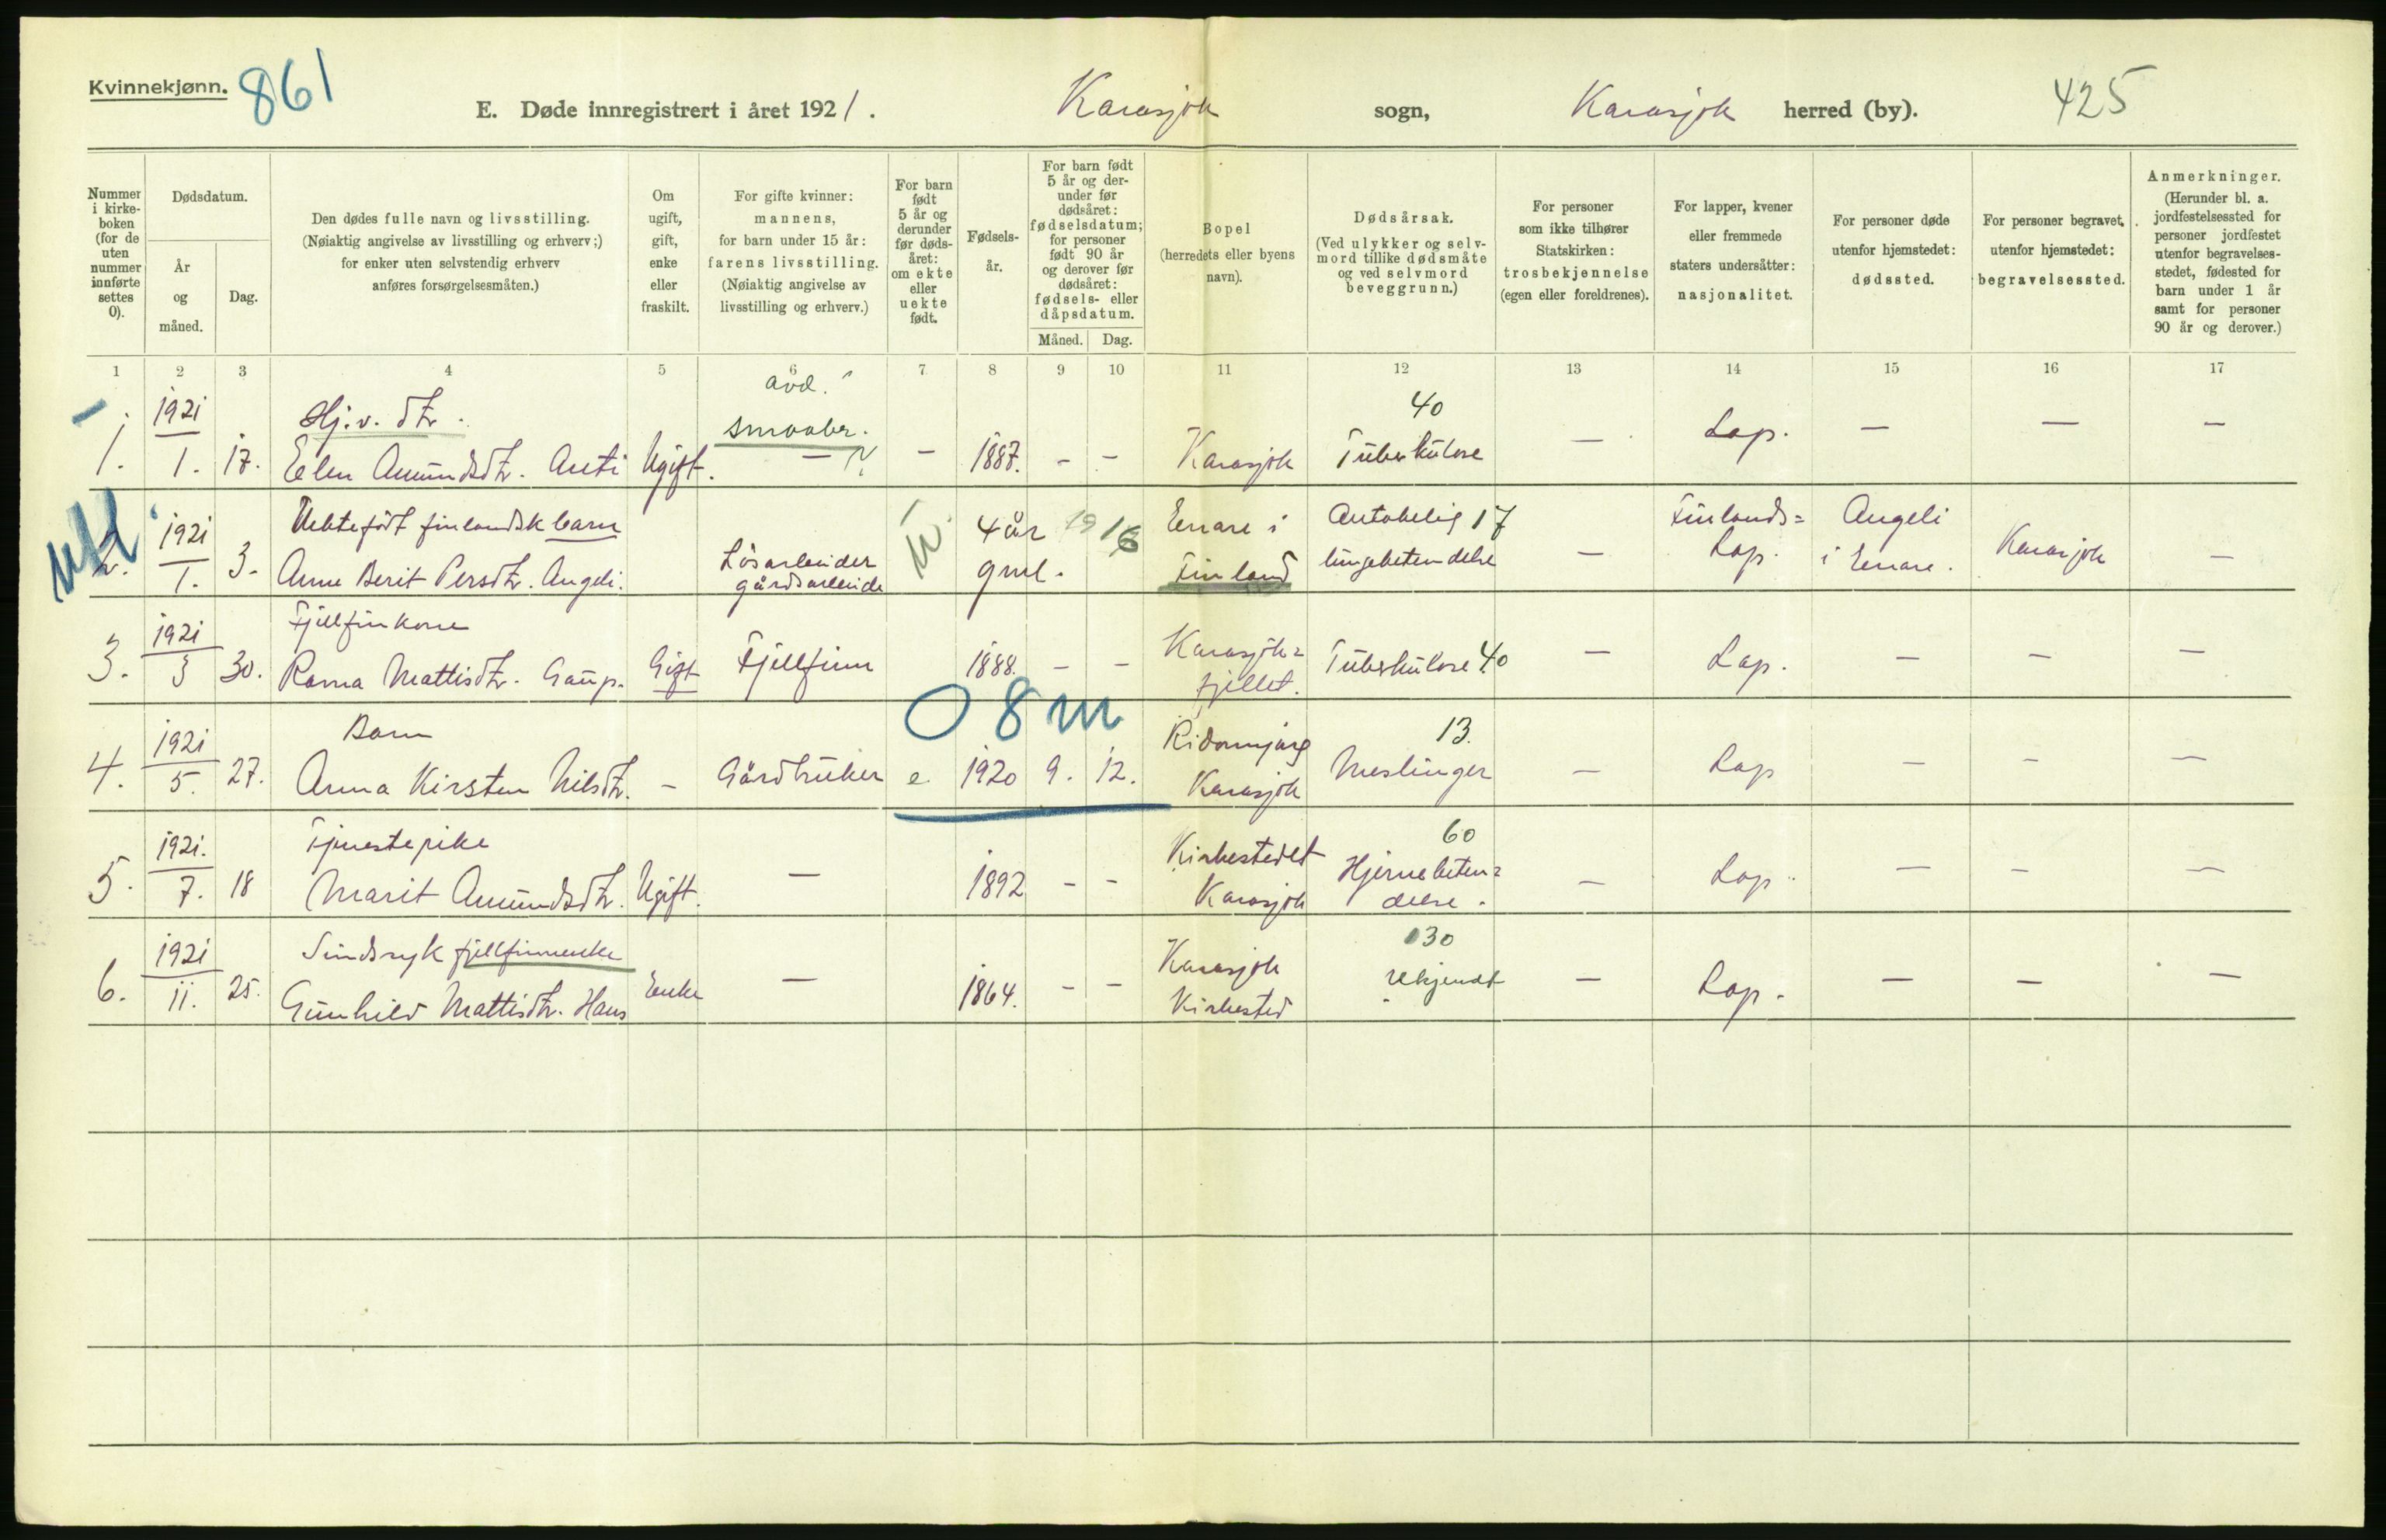 Kvinnekjønn.
861
E. Døde innregistrert i året 1921.
Karasjok sogn,
Karasjok herred (by).
425
Nummer i kirke-boken (for de uten nummer innførte settes 0).
Dødsdatum.
År og måned.
Dag.
Den dødes fulle navn og livsstilling.
(Nøiaktig angivelse av livsstilling og erhverv;)
for enker uten selvstendig erhverv
anføres forsørgelsesmåten.)
Om ugift, gift, enke eller fraskilt.
For gifte kvinner:
mannens,
for barn under 15 år:
farens livsstilling.
(Nøiaktig angivelse av
livsstilling og erhverv.)
For barn født 5 år og derunder før døds-året: om ekte eller uekte født.
Fødsels-år.
For barn født 5 år og der-under før dødsåret: fødselsdatum; for personer født 90 år og derover før dødsåret: fødsels- eller dåpsdatum.
Måned.
Dag.
Bopel
(herredets eller byens
navn).
Dødsårsak.
(Ved ulykker og selv-
mord tillike dødsmåte
og ved selvmord
beveggrunn.)
For personer
som ikke tilhører
Statskirken:
trosbekjennelse
(egen eller foreldrenes).
For lapper, kvener
eller fremmede
staters undersåtter:
nasjonalitet.
For personer døde
utenfor hjemstedet:
dødssted.
For personer begravet
utenfor hjemstedet:
begravelsessted.
Anmerkninger.
(Herunder bl. a.
jordfestelsessted for
personer jordfestet
utenfor begravelses-
stedet, fødested for
barn under 1 år
samt for personer
90 år og derover.)
1 2 3 4 5 6 7 8 9 10 11 12 13 14 15 16 17
1921 Hj.v. dtr. avd. smaabr. 40
1. 1. 17. Elen Amundsdtr. Anti Ugift. - ? - 1887. - - Karasjok Tuberkulose - Lap. - - -
1921 Uektefødt finlandsk barn 4 år 1916 Enare i Antakelig 17 Finlands= Angeli
2. 1. 3. Anne Berit Persdtr. Angeli. Løsarbeider gårdsarbeide u. gml. Finland lungebetendelse - Lap. i Enare. Karasjok -
1921 Fjellfinkone Karasjok=
3. 3 30. Ravna Mattisdtr. Gaup. Gift Fjellfinn 1888. - - fjellet. Tuberkulose 40 - Lap. - - -
0 8 m
1921 Barn 13.
4. 5. 27. Anna Kirsten Nilsdtr. - Gårdbruker e. 1920 9. 12. Karasjok Meslinger - Lap - - -
1921. Tjenestepike Kirkestedet 60
5. 7. 18 Marit Amundsdtr. Ugift. - 1892 - - Karasjok Hjernebeten= delse. - Lap. - - -
1921 Sindsyk fjellfinnenke Karasjok 130
6. 11. 25. Gunhild Mattisdtr. Hans Enke - 1864. - - Kirkested ukjendt - Lap. - - -